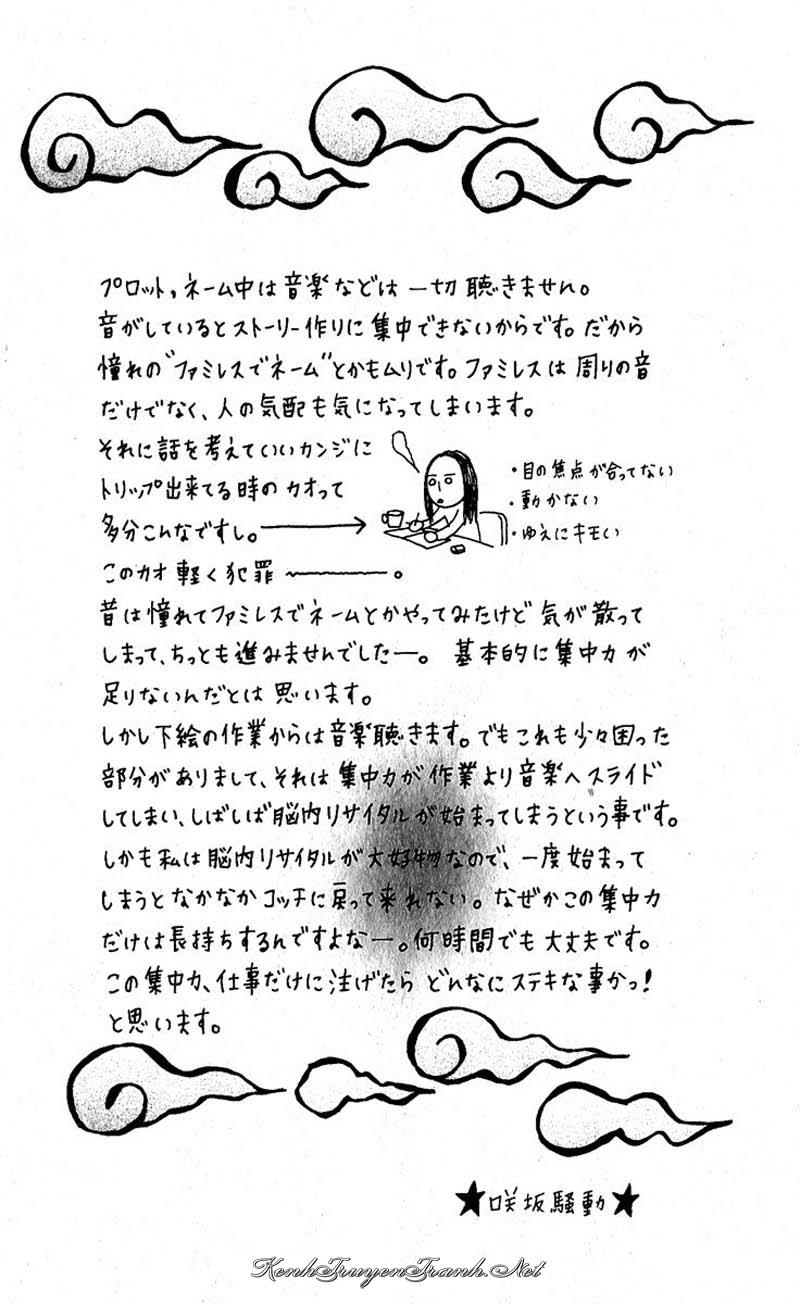 プロット,ネーム中は音楽などは一切聴きません。
音がしているとストーリー作りに集中できないからです。だから
憧れの"ファミレスでネーム"とかもムリです。ファミレスは周りの音
だけでなく、人の気配も気になってしまいます。
それに話を考えていいカンジに
トリップ出来てる時のカオって
多分こんなですし。
・目の焦点が合ってない
・動かない
・ゆえにキモい
このカオ軽く犯罪〜。
昔は憧れてファミレスでネームとかやってみたけど気が散って
しまって、ちっとも進みませんでしたー。 基本的に集中力が
足りないんだとは思います。
しかし下絵の作業からは音楽聴きます。でもこれも少々困った
部分がありまして、それは集中力が作業より音楽へスライド
してしまい、しばしば脳内リサイタルが始まってしまうという事です。
しかも私は脳内リサイタルが大好物なので、一度始まって
しまうとなかなかコッチに戻って来れない。なぜかこの集中力
だけは長持ちするんですよなー。何時間でも大丈夫です。
この集中力、仕事だけに注げたらどんなにステキな事かっ!
と思います。
★咲坂騒動★
KenhTruyenTranh.Net